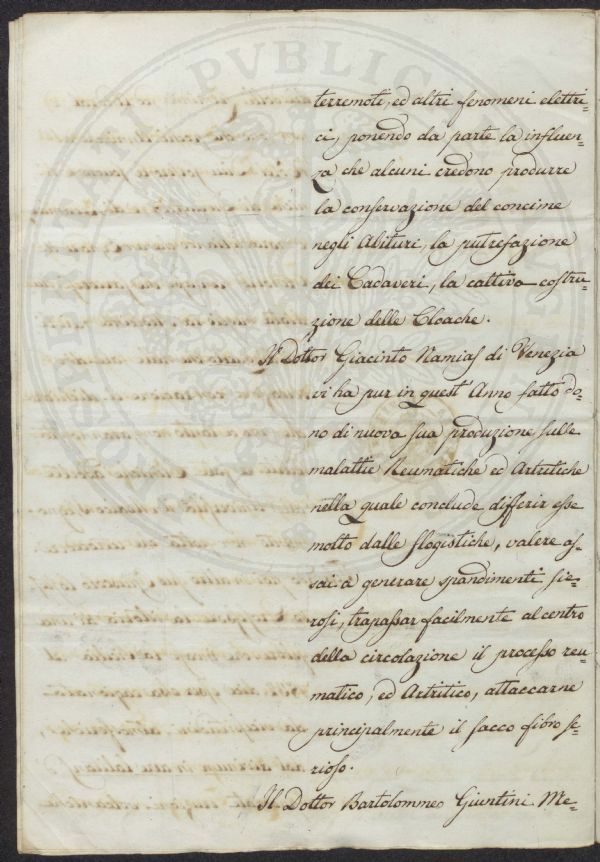 terremoti, ed altri fenomeni elettri=
ci, ponendo da parte la influen=
za che alcuni credono produrre
la conservazione del concime
negli Abituri, la putrefazione
dei Cadaveri, la cattiva costru=
zione delle Cloache.
Il Dottor Giacinto Namias di Venezia
vi ha pur in quest' Anno fatto do=
no di nuova sua produzione sulle
malattie Reumatiche ed Artritiche
nella quale conclude differir esse
molto dalle flogistiche, valere as=
sai a generare spandimenti sie=
rosi, trapassar facilmente al centro
della circolazione il processo reu=
matico, ed Artritico, attaccarne
principalmente il sacco fibro se=
rioso.
Il Dottor Bartolommeo Giuntini Me=